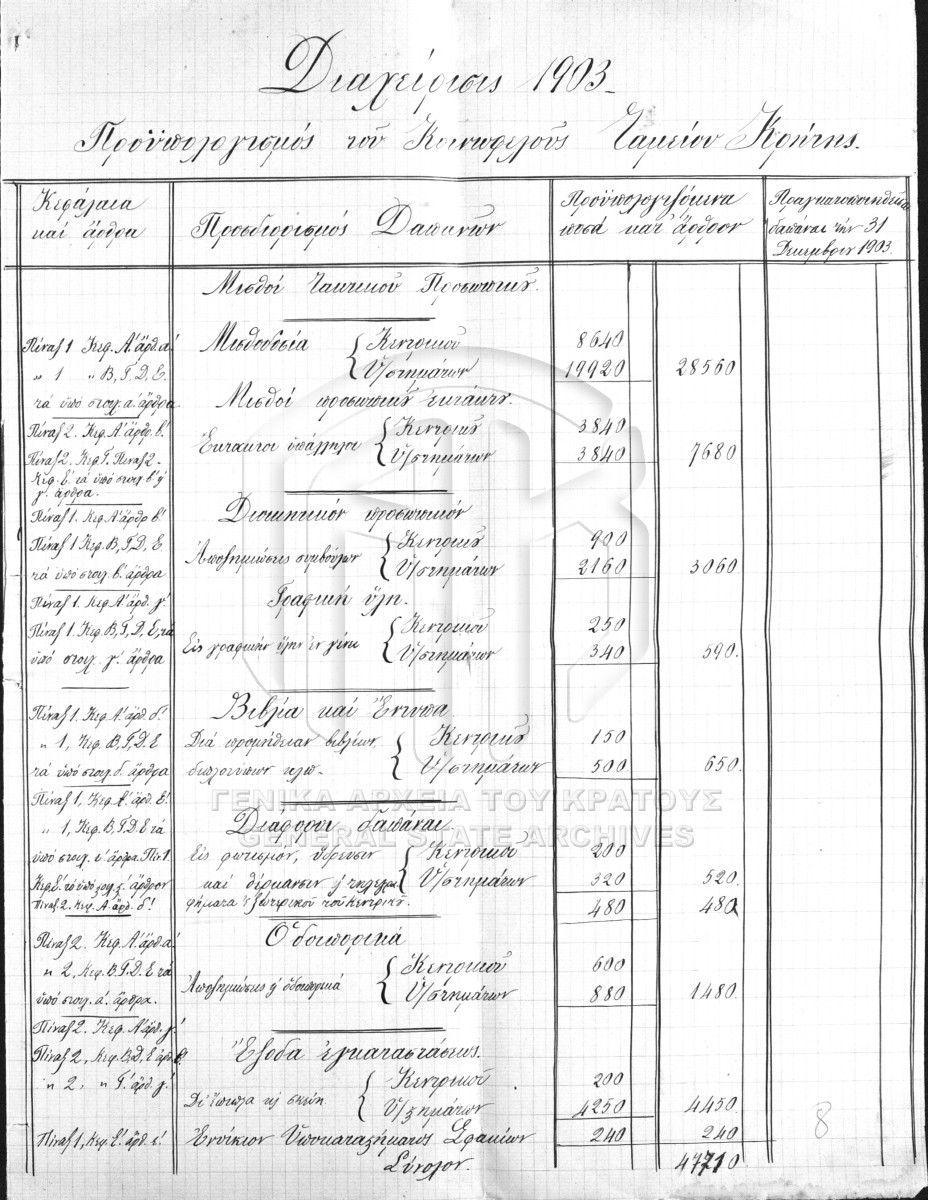 Διαχείρισις 1903_
Προϋπολογισμός τοῦ Κοινωφελοῦς Ταμείου Κρήτης.
Κεφάλαια καὶ ἄρθρα
Προσδιορισμός Δαπανῶν
Προϋπολογιζόμενα ποσά κατ' ἄρθρον
δαπάναι τήν 31 Δεκεμβρίου 1903
Μισθοί τακτικοῦ Προσωπικοῦ.
Πίναξ 1 Κεφ. Α' ἄρθ. α' Μισθοδοσία { Κεντρικοῦ 8640
„ 1 „ Β, Γ, Δ, Ε. Ὑ/στημάτων 19920 28560
τά ὑπό στοιχ. α. ἄρθρα Μισθοί προσωπικοῦ ἐκτάκτου.
Πίναξ 2. Κεφ. Α' ἄρθρ. β'. Ἔκτακτοι ὑπάλληλοι { Κεντρικοῦ 3840
Πίναξ 2. Κεφ. Γ. Πίναξ 2. Ὑ/στημάτων 3840 7680
Κεφ. Ε' τά ὑπό στοιχ. β' ἤ
γ'. ἄρθρα.
Πίναξ 1. Κεφ. Α' ἄρθρ β'. Διοικητικόν προσωπικόν
Πίναξ 1 Κεφ. Β, Γ, Δ, Ε. Ἀποζημιώσεις συμβούλων { Κεντρικοῦ 900
τά ὑπό στοιχ. β'. ἄρθρα Ὑ/στημάτων 2160 3060
Πίναξ 1. Κεφ. Α' ἄρθ. γ'. Γραφική ὕλη.
Πίναξ 1. Κεφ. Β, Γ, Δ, Ε, τά Εἰς γραφικήν ὕλην ἐν γένει { Κεντρικοῦ 250
ὑπό στοιχ. γ'. ἄρθρα Ὑ/στημάτων 340 590.
Βιβλία καὶ Ἔντυπα
Πίναξ 1. Κεφ. Α' ἄρθ. δ'.
„ 1, Κεφ. Β, Γ, Δ. Ε Διά προμήθειαν βιβλίων, { Κεντρικοῦ 150
τά ὑπό στοιχ. δ. ἄρθρα διπλοτύπων κλπ. Ὑ/στημάτων 500 650.
ΓΕΝΙΚΑ ΑΡΧΕΙΑ ΤΟΥ ΚΡΑΤΟΥΣ
GENERAL STATE ARCHIVES
Πίναξ 1, Κεφ. Α' ἄρθ. ε'. Διάφοροι δαπάναι
„ 1, Κεφ. Β, Γ. Δ. Ε τά
ὑπό στοιχ. ε' ἄρθρα. Πιν 1. Εἰς φωτισμόν, ὕδρευσιν { Κεντρικοῦ 200
Κεφ. Ε' τό ὑπό στοιχ. ς'. ἄρθρον καὶ θέρμανσιν ἤ τηλεγρα Ὑ/στημάτων 320 520.
Πίναξ 2. Κεφ. Α. ἄρθ. δ'. φήματα ἐξωτερικοῦ τοῦ Κεντρικοῦ. 480 480
Ὁδοιπορικά
Πίναξ 2. Κεφ. Α' ἄρθ. α'. Κεντρικοῦ 600
„ 2, Κεφ. Β. Γ. Δ. Ε τά Ἀποζημιώσεις ἤ ὁδοιπορικά {
ὑπό στοιχ. α'. ἄρθρα. Ὑ/στημάτων 880 1480.
Πίναξ 2. Κεφ. Α' ἄρθ. γ'.
Πίναξ 2, Κεφ. Β, Δ, Ε ἄρθ. β. Ἔξοδα ἐγκαταστάσεως.
„ 2, „ Γ' ἄρθ. γ'. { Κεντρικοῦ 200
Δι' ἔπιπλα κ σκεύη Ὑ/στημάτων 4250 4450.
Πίναξ 1, Κεφ. Ε'. ἄρθ. ε'. Ἐνοίκιον Ὑποκαταστήματος Σφακίων 240 240
Σύνολον. 47710
8